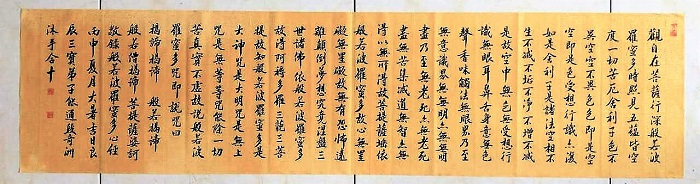 觀自在菩薩行深般若波
羅蜜多時照見五蘊皆空
度一切苦厄舍利子色不
異空空不異色色即是空
空即是色受想行識亦復
如是舍利子是諸法空相不
生不滅不垢不淨不增不減
是故空中無色無受想行
識無眼耳鼻舌身意無色
聲香味觸法無眼界乃至
無意識界無無明亦無無明
盡乃至無老死亦無老死
盡無苦集滅道無智亦無
得以無所得故菩提薩埵依
般若波羅蜜多故心無罣
礙無罣礙故無有恐怖遠
離顛倒夢想究竟涅盤三
世諸佛依般若波羅蜜多
故得阿耨多羅三藐三菩
提故知般若波羅蜜多是
大神咒是大明咒是無上
咒是無等等咒能除一切
苦真實不虛故說般若波
羅蜜多咒即說咒曰
揭諦揭諦 般若揭諦
般若僧揭諦 菩提薩婆訶
敬錄般若波羅蜜多心經
丙申夏月大暑吉日良
辰三寶弟子 通段奇洲
沐手合十